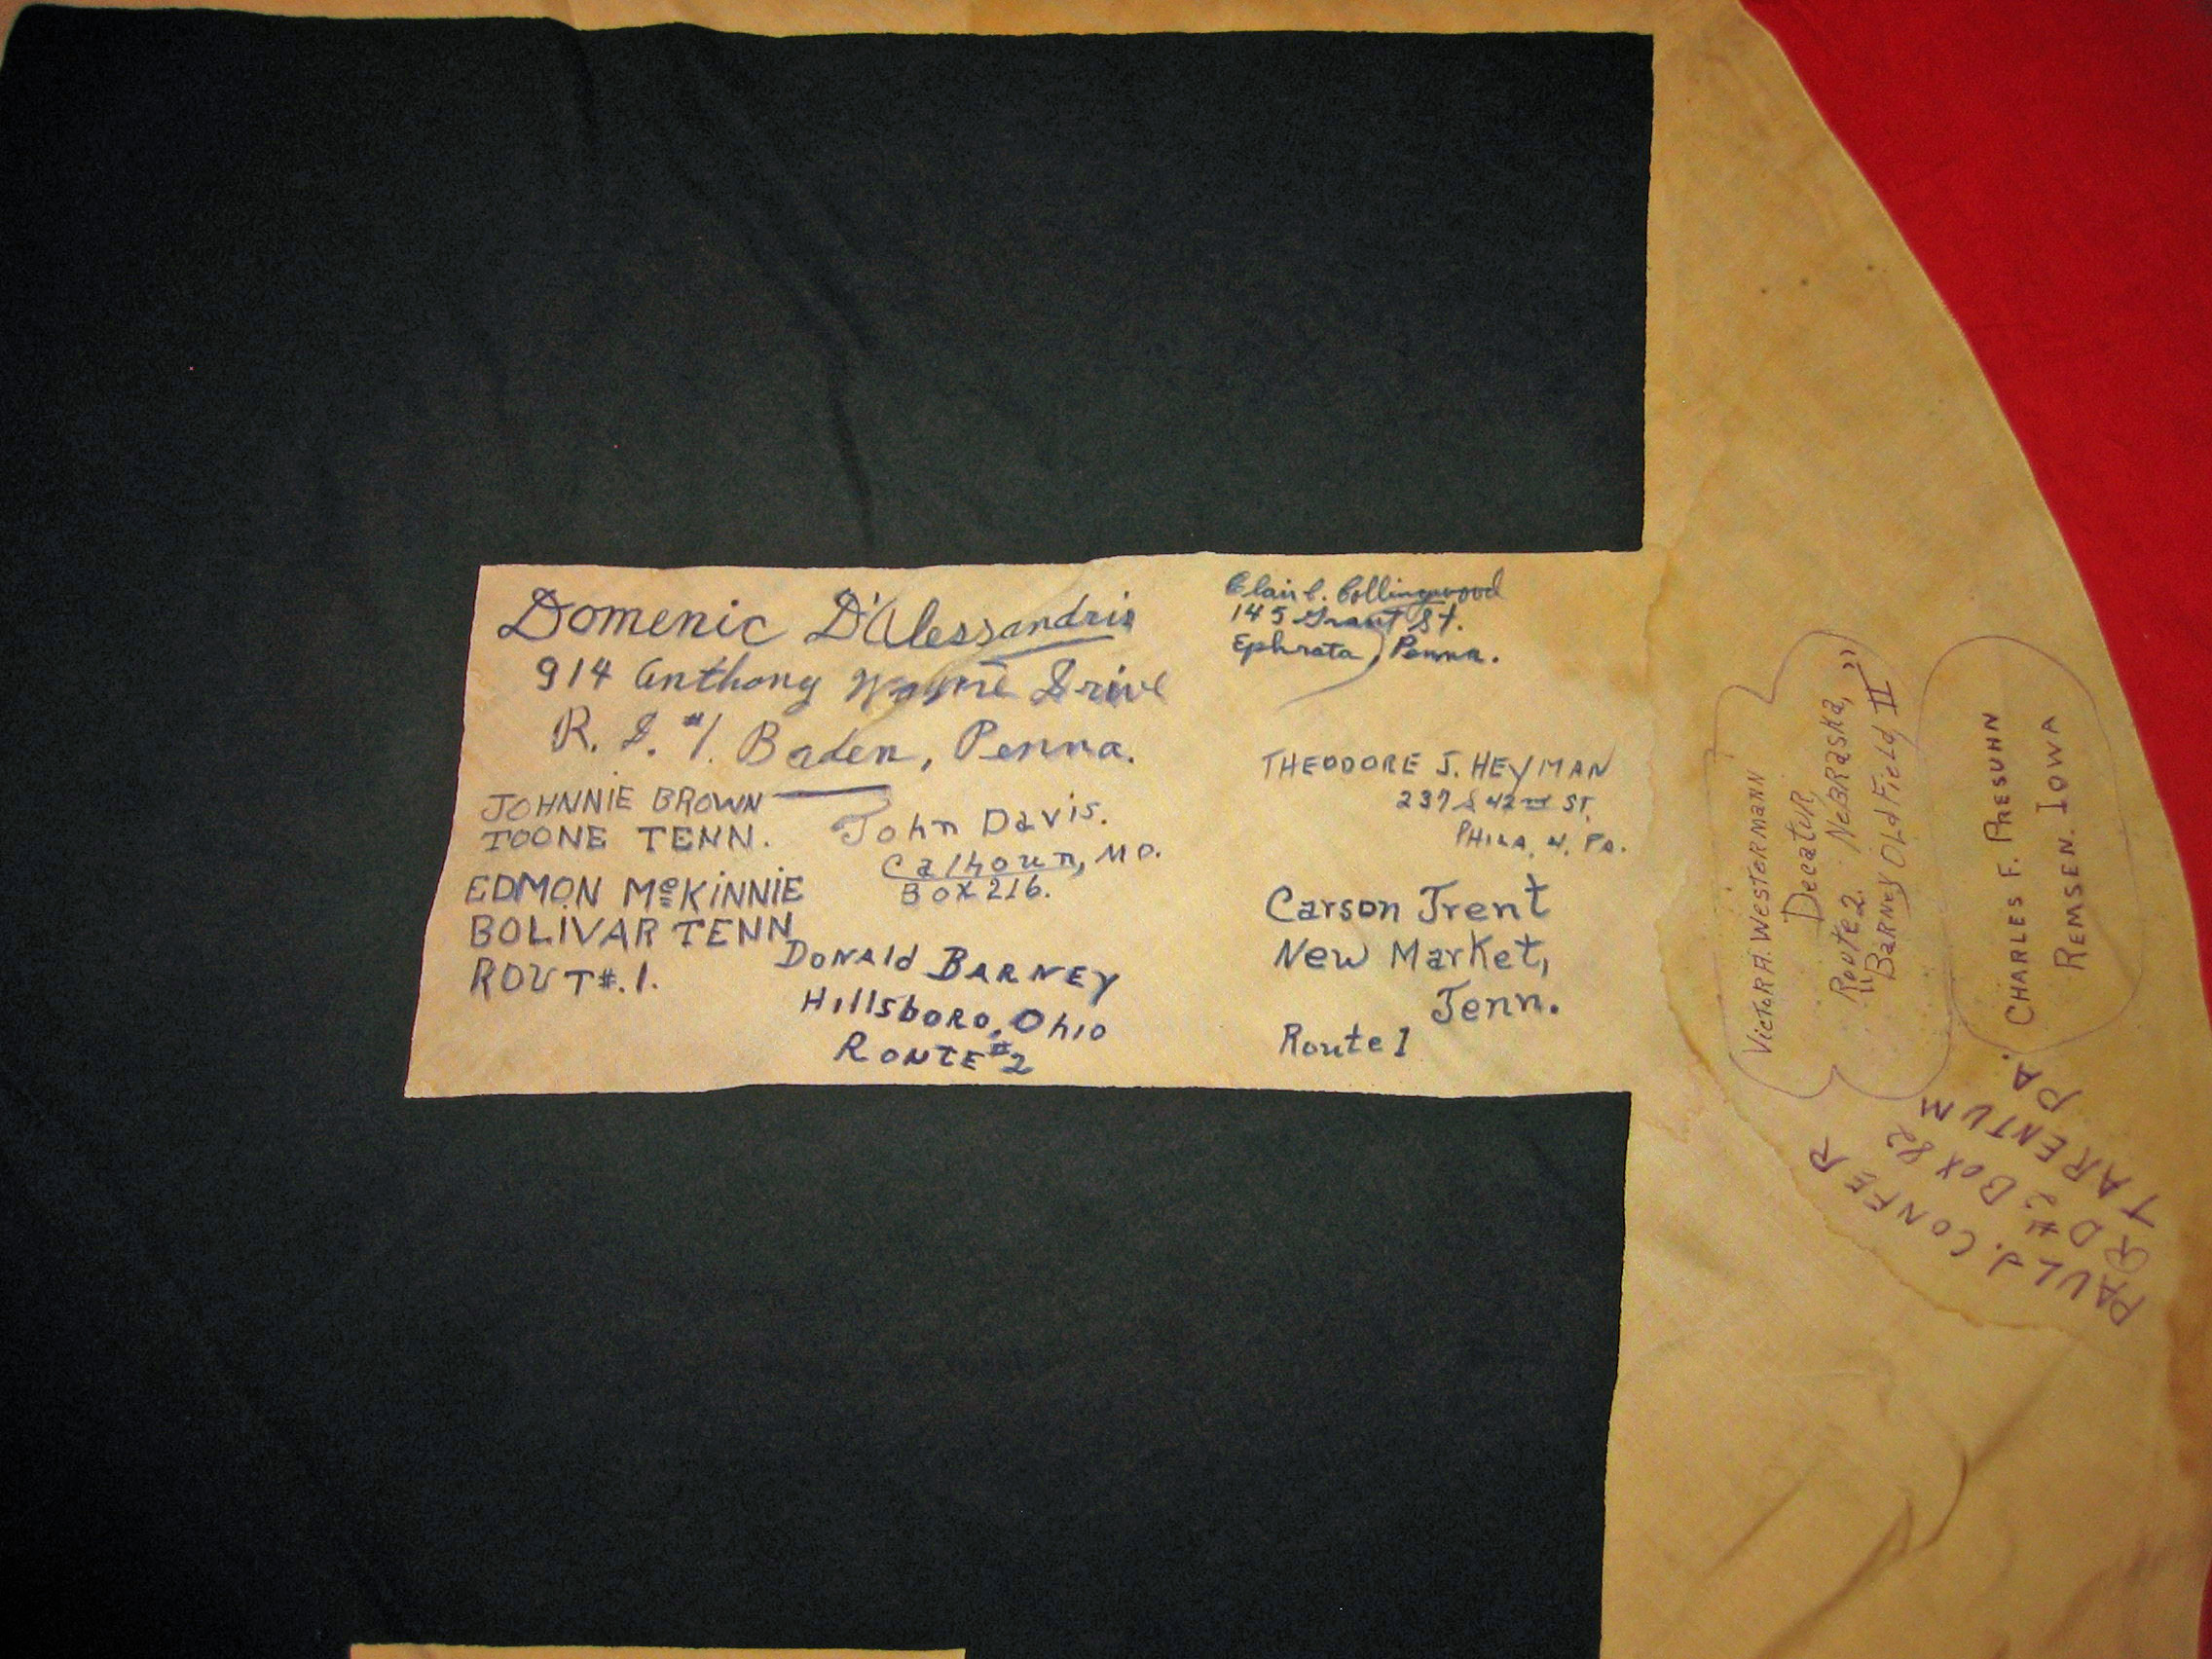 Domenic D'Alessandris
914 Anthony Wayne Drive
R. D. #1. Baden, Penna.
JOHNNIE BROWN
TOONE TENN.
EDMON McKINNIE
BOLIVAR TENN
ROUT #.1.
John Davis.
Calhoun, Mo.
Box 216.
DONALD BARNEY
Hillsboro, Ohio
ROUTE #2
Clair C. Collingwood
145 Grant St.
Ephrata, Penna.
THEODORE J. HEYMAN
237 S 42nd ST.
PHILA. 4. PA.
Carson Trent
New Market,
Tenn.
Route 1
Victor A. Westermann
Decatur,
Route 2. Nebraska,
"Barney Oldfield II"
CHARLES F. PRESUHN
REMSEN. IOWA
PAUL J. CONFER
RD #2 BOX 82
TARENTUM PA.